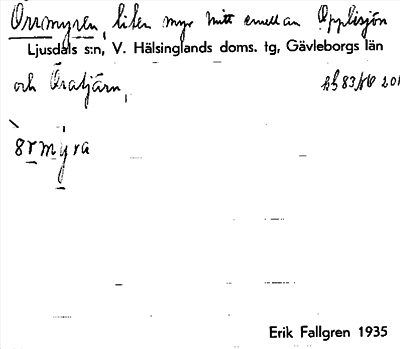 Orrmyren, liten myr mitt emellan Opplisjön
Ljusdals s:n, V. Hälsinglands doms. tg, Gävleborgs län
och Öratjärn,
Erik Fallgren 1935